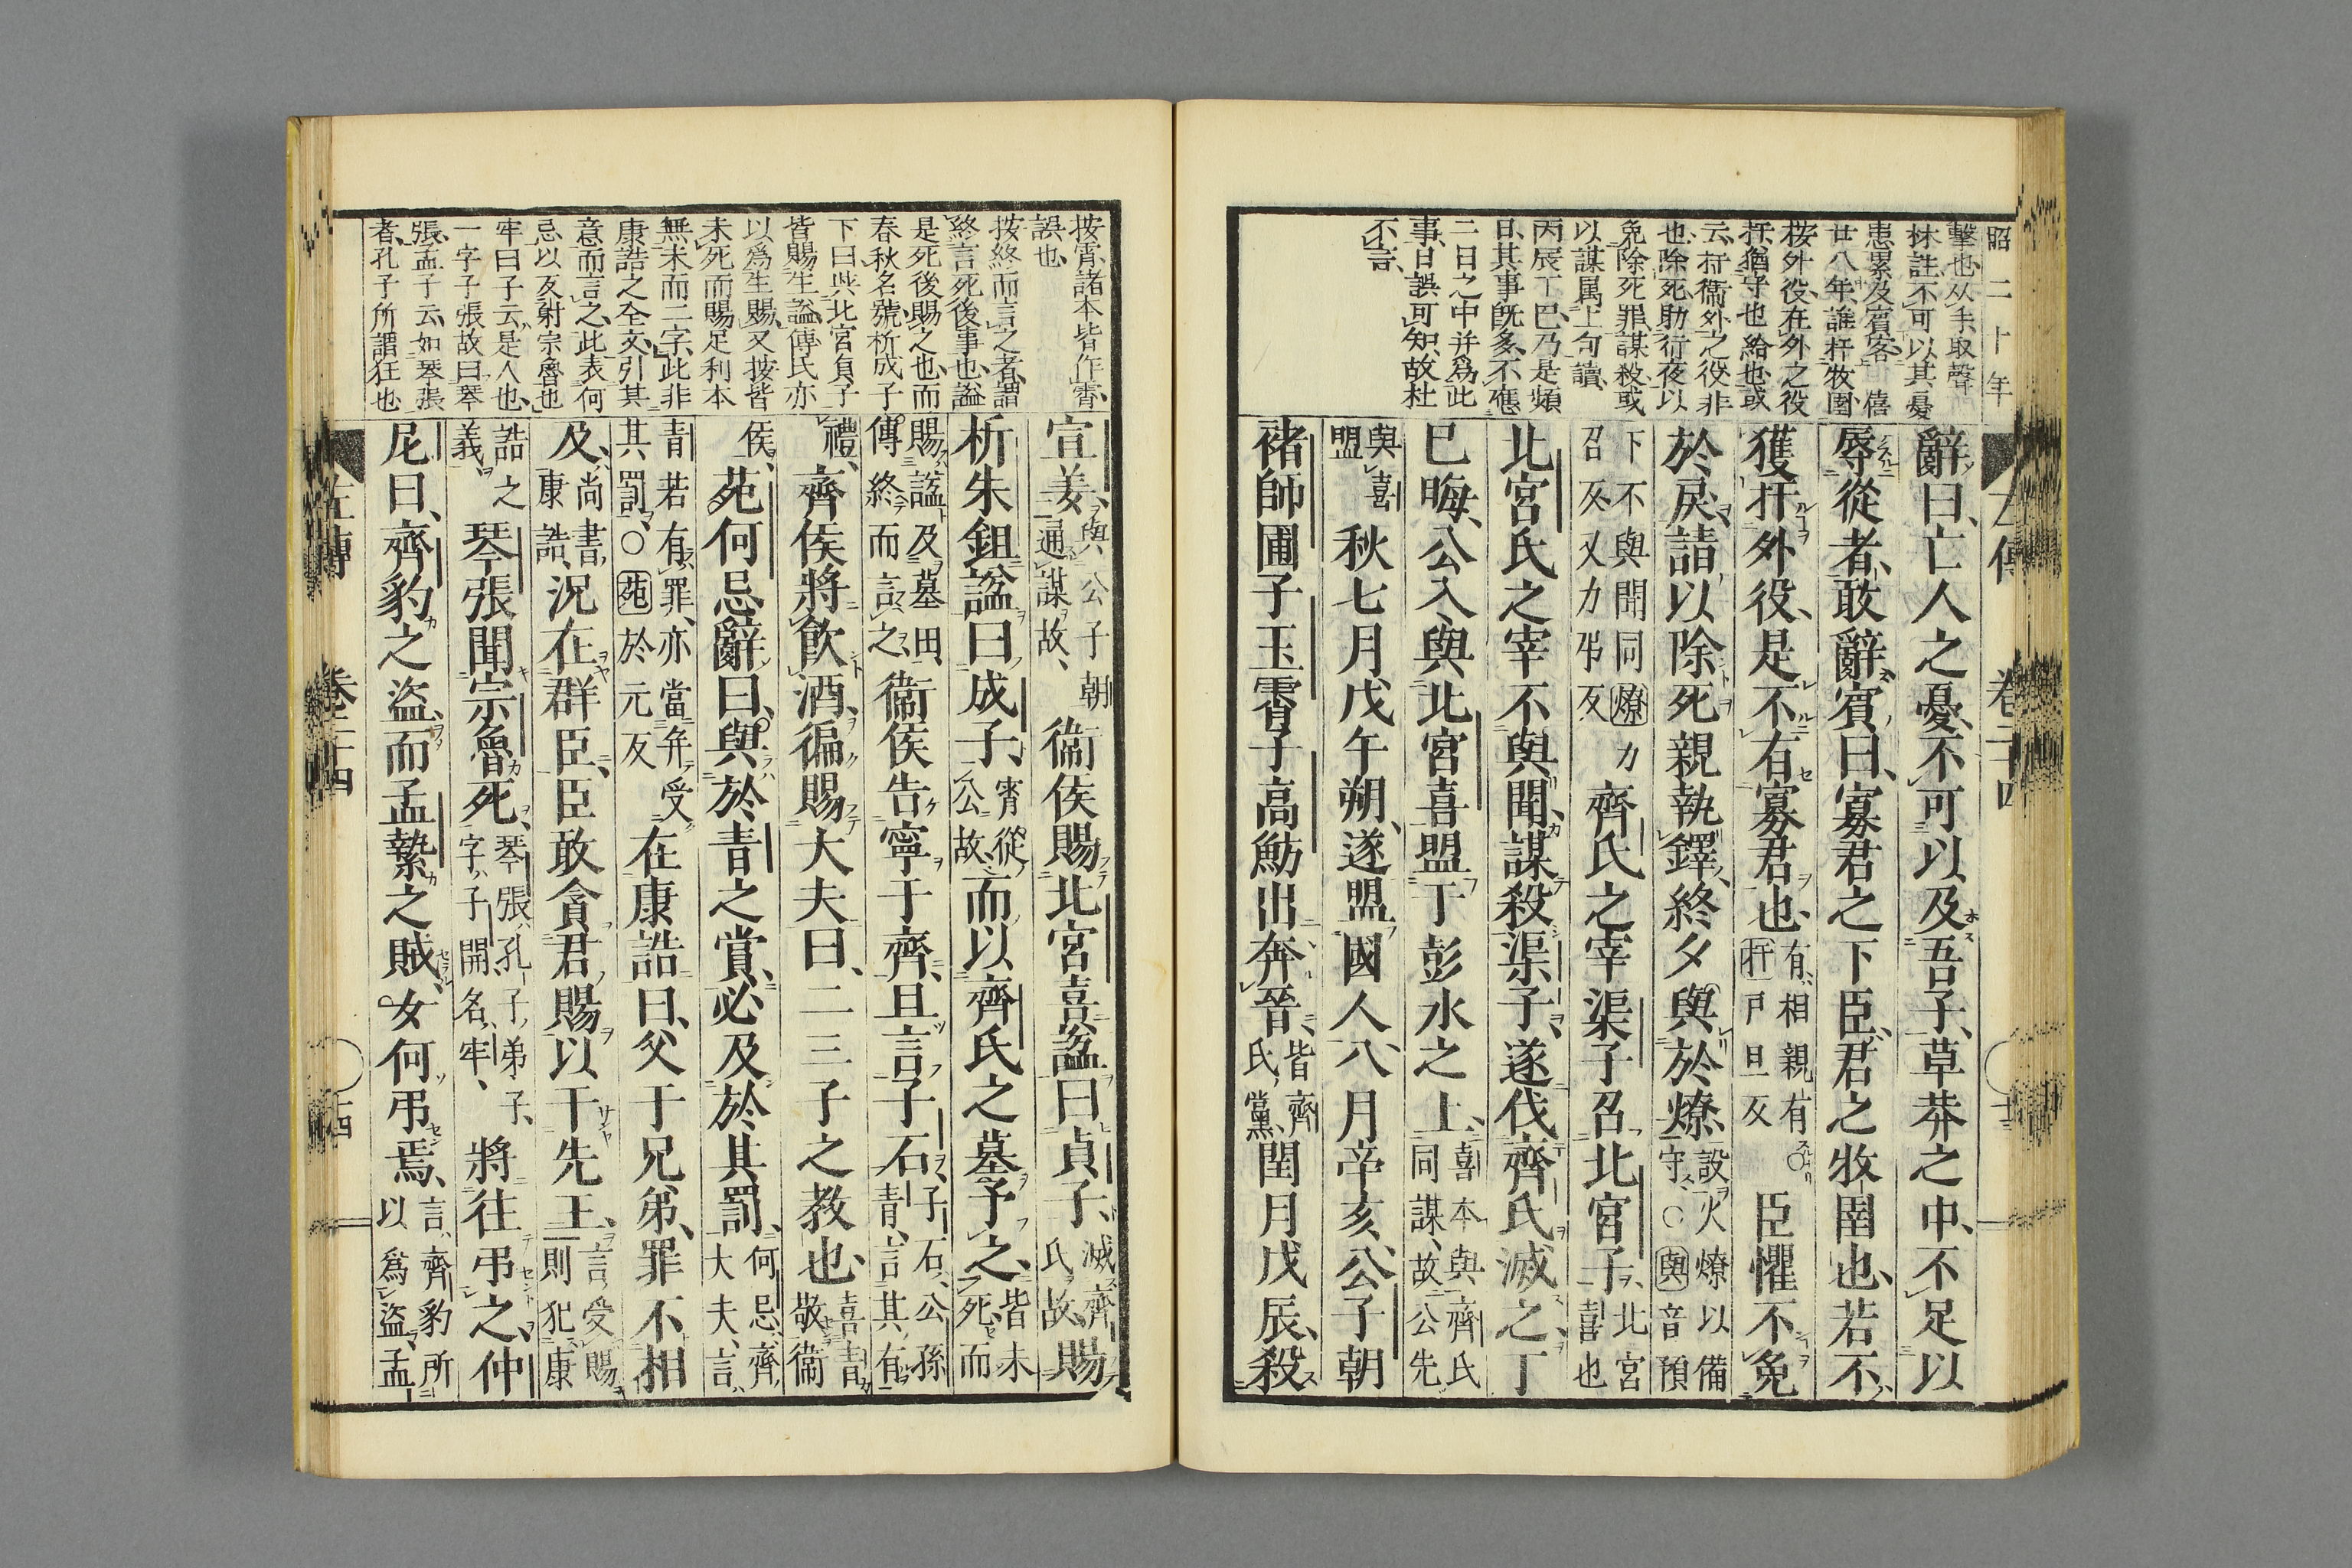 昭二十年
擊也从手取聲
掫註不可以其憂
患累及賓客 僖
廿八年誰扞牧圉
按外役在外之役
扞猶守也給也或
云扞衞外之役非
也除死助行夜以
免除死罪謀殺或
以謀屬上句讀
丙辰丁巳乃是頻
日其事旣多不應
二日之中并爲此
事日誤可知故杜
不言
辭曰、亡人之憂、不可以及吾子、草莽之中、不足以
辱從者、敢辭、賓曰、寡君之下臣、君之牧圉也、若不
獲扞外役、是不有寡君也、有相親有○扞戸旦反臣懼不免
於戾、請以除死、親執鐸、終夕與於燎、設火燎以備守○與音預
下不與聞同燎力召反又力弔反齊氏之宰渠子召北宮子、北宮喜也
北宮氏之宰不與聞、謀殺渠子、遂伐齊氏滅之、丁
巳晦、公入、與北宮喜盟于彭水之上、喜本與齊氏同謀、故公先
與喜盟秋七月戊午朔、遂盟國人、八月辛亥、公子朝
褚師圃子玉霄子高魴出奔晉、皆齊氏黨、閏月戊辰、殺
按霄諸本皆作霄
誤也
按終而言之者謂
終言死後事也謚
是死後賜之也而
春秋名號析成子
下曰與北宮貞子
皆賜生謚傳氏亦
以爲生賜又按皆
未死而賜足利本
無未而二字此非
康誥之全文引其
意而言之此表何
忌以反射宗魯也
牢曰子云是人也
一字子張故曰琴
張孟子云如琴張
者孔子所謂狂也
宣姜、與公子朝通謀故、衞侯賜北宮喜謚曰貞子、滅齊氏故、賜
析朱鉏謚曰成子、宵從公故、而以齊氏之墓予之、皆未死而
賜謚及墓田、傳終而言之、衞侯告寧于齊、且言子石、子石、公孫青、言其有
禮、齊侯將飲酒、徧賜大夫曰、二三子之教也、喜青敬衞
侯苑何忌辭曰、與於青之賞、必及於其罰、何忌、齊大夫、言
青若有罪、亦當并受其罰○苑於元反在康誥曰、父子兄弟、罪不相
及、尚書、康誥、況在群臣、臣敢貪君賜以干先王、言受賜則犯康
誥之義琴張聞宗魯死、琴張、孔子弟子、字子開、名牢、將往弔之、仲
尼曰、齊豹之盜、而孟縶之賊、女何弔焉、言齊豹所以爲盜、孟
左傳 卷二十四 十四